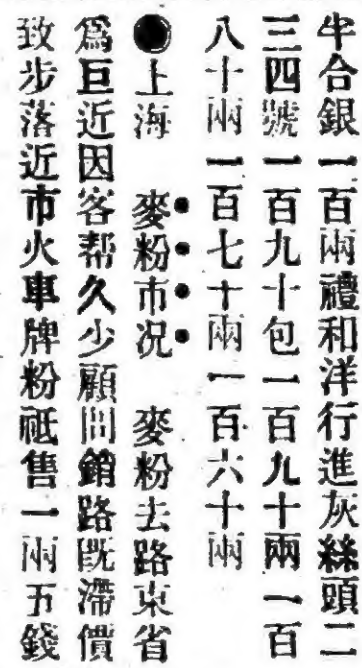 牛合銀一百兩禮和洋行進灰絲頭二
三四號一百九十包一百九十兩一百
八十兩一百七十兩一百六十兩
●上海　麥粉市况　麥粉去路東省
爲巨近因客帮久少顧問銷路既滯價
致步落近市火車牌粉祗售一兩五錢